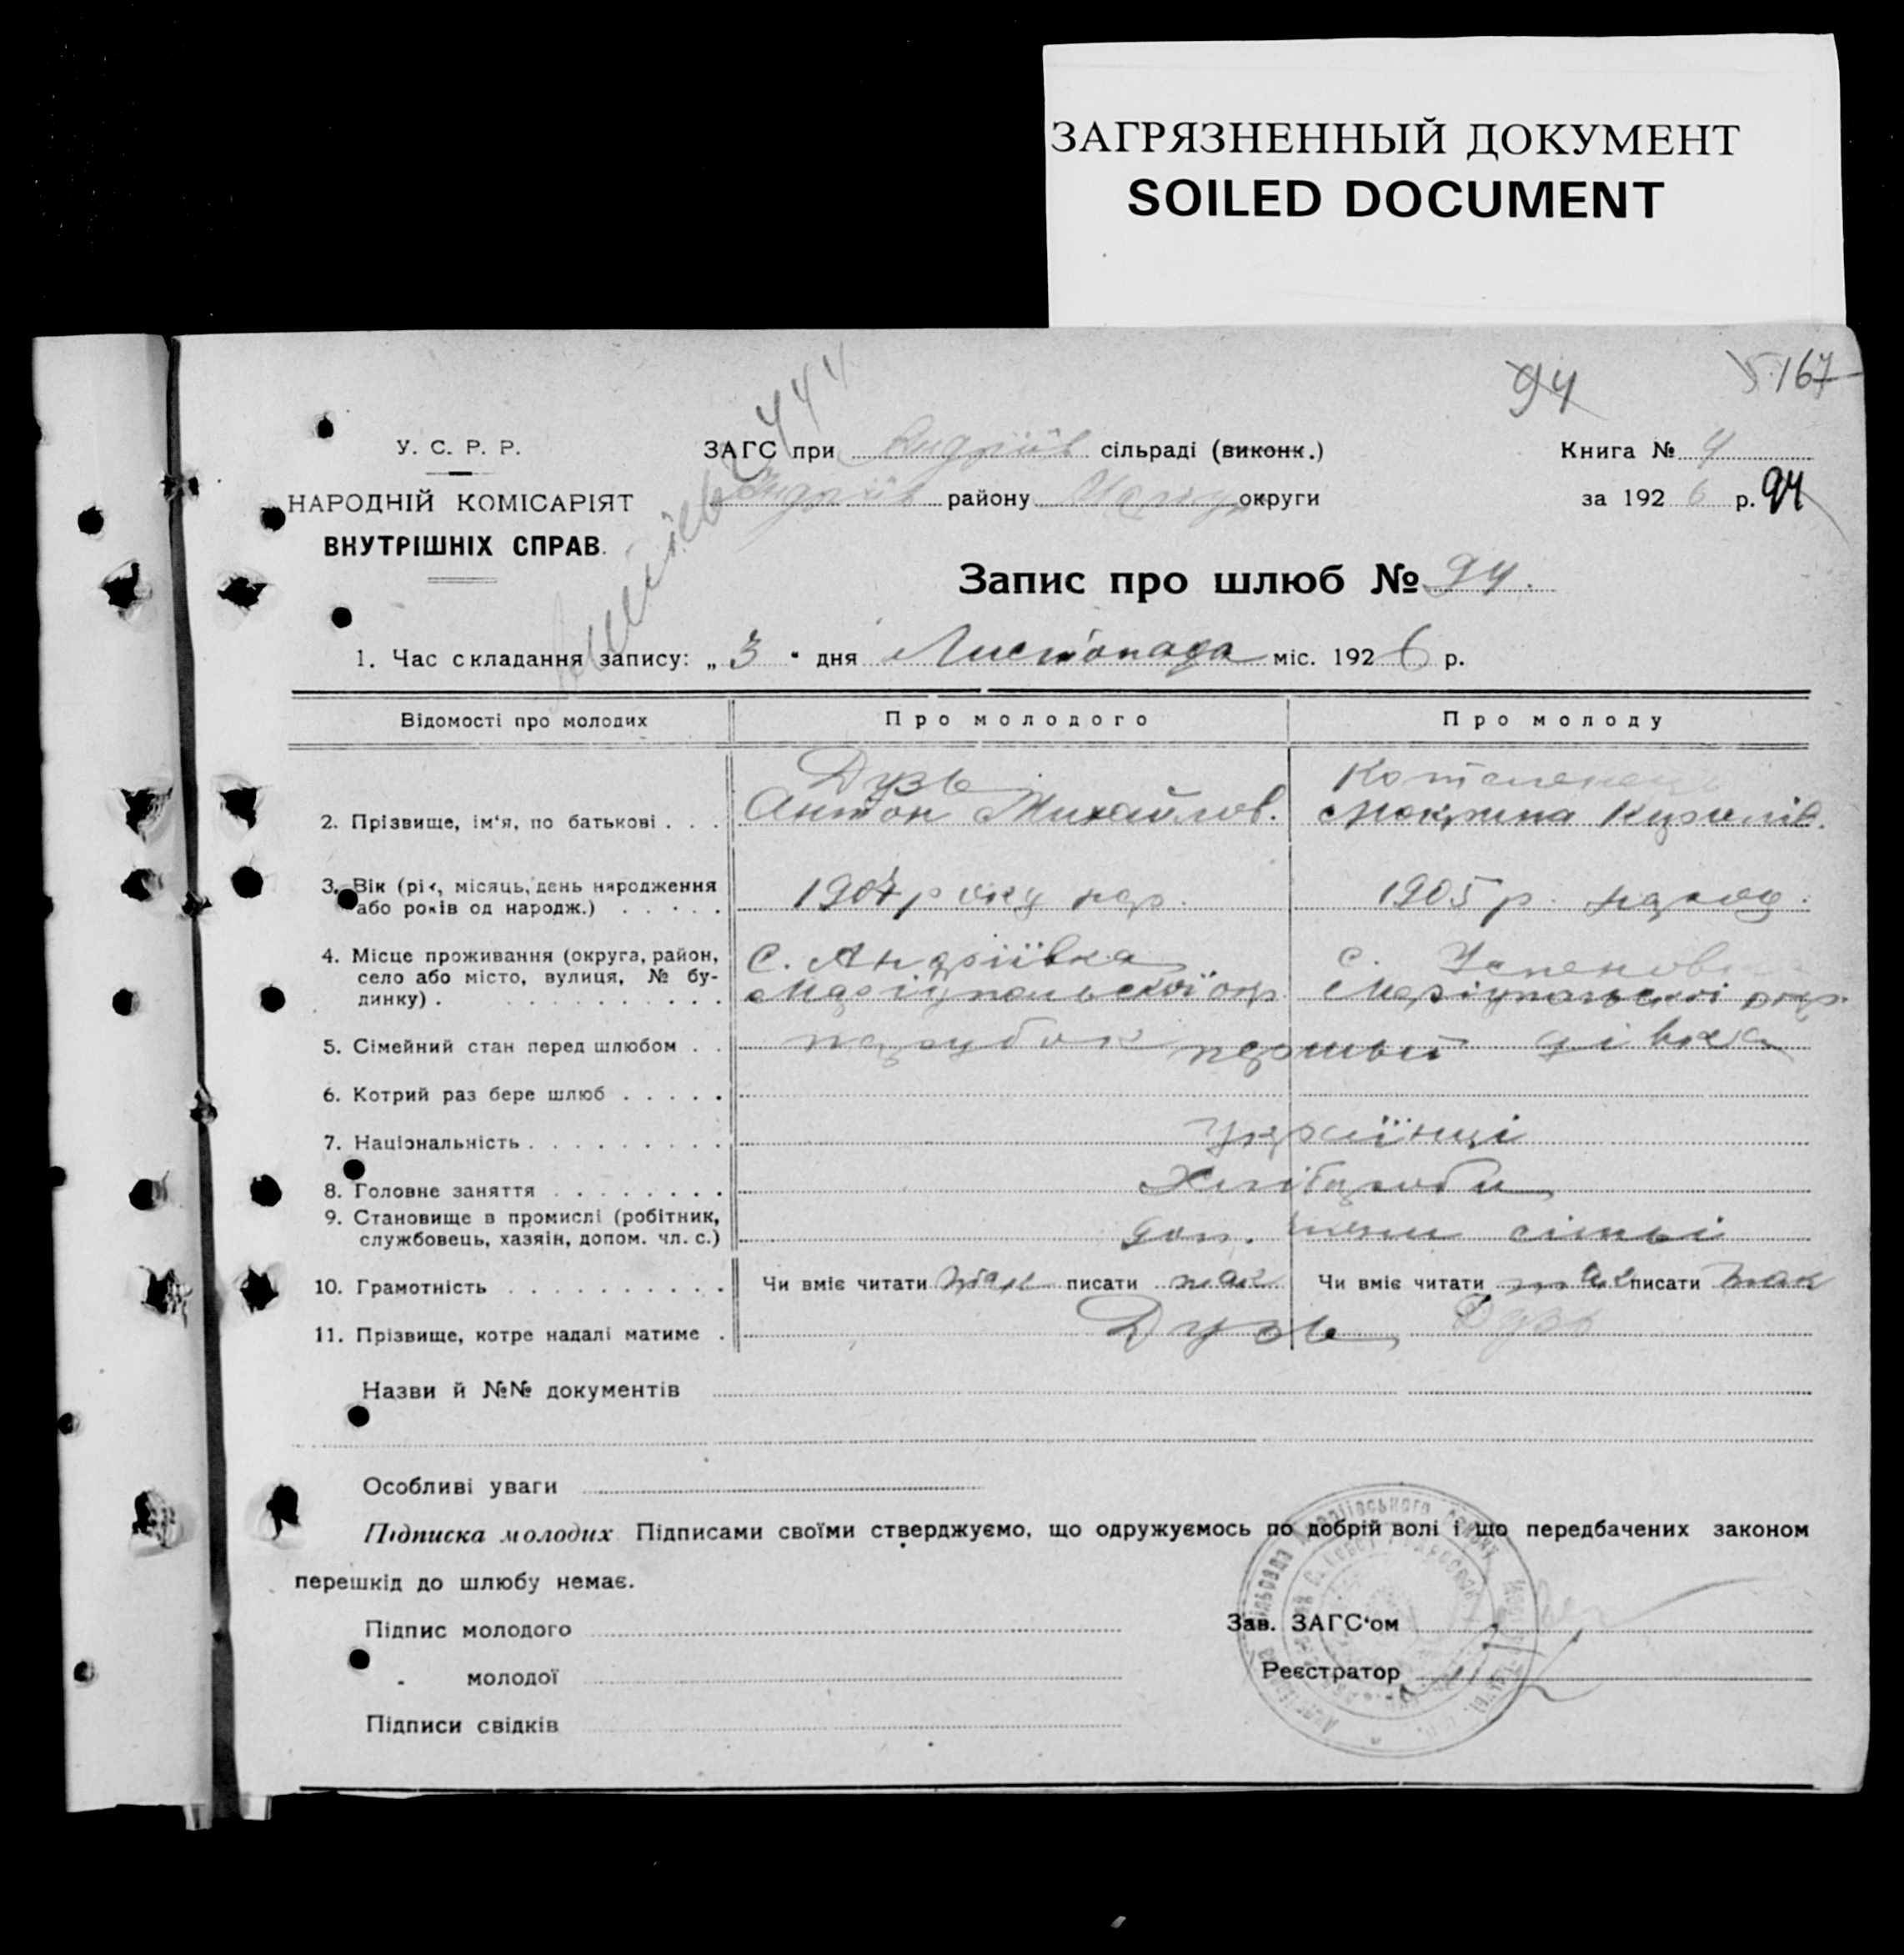 ЗАГРЯЗНЕННЫЙ ДОКУМЕНТ
SOILED DOCUMENT
94 167
У. С. Р. Р.
НАРОДНІЙ КОМІСАРІЯТ
ВНУТРІШНІХ СПРАВ.
ЗАГС при Андріїв сільраді (виконк.)
Андріїв району Маріуп округи
Книга № 4
за 1926 р. 94
Запис про шлюб № 94.
1. Час складання запису: „ 3 " дня Листопада міс. 1926 р.
Відомості про молодих Про молодого Про молоду
2. Прізвище, ім'я, по батькові . . . Дузь
Антон Михайлов. Мокрина
3. Вік (рік, місяць, день народження
або років од народж.) . . . . . 1904 року нар. 1905 р. народ.
4. Місце проживання (округа, район,
село або місто, вулиця, № бу-
динку) . . . . . . . . . . . С. Андріївка
Маріупольської окр. с. Успенов
Маріупольскої окр.
5. Сімейний стан перед шлюбом . . парубок дівка
6. Котрий раз бере шлюб . . . . . первый
7. Національність . . . . . . . . . українці
8. Головне заняття . . . . . . . . Хлібороби
9. Становище в промислі (робітник,
службовець, хазяін, допом. чл. с.) доп. члени сімьі
10. Грамотність . . . . . . . . . . Чи вміє читати так писати так Чи вміє читати так писати так
11. Прізвище, котре надалі матиме . Дузь Дузь
Назви й №№ документів
Особливі уваги
Підписка молодих Підписами своїми стверджуємо, що одружуємось по добрій волі і що передбачених законом
перешкід до шлюбу немає.
Підпис молодого
" молодої
Підписи свідків
Зав. ЗАГС'ом
Реєстратор